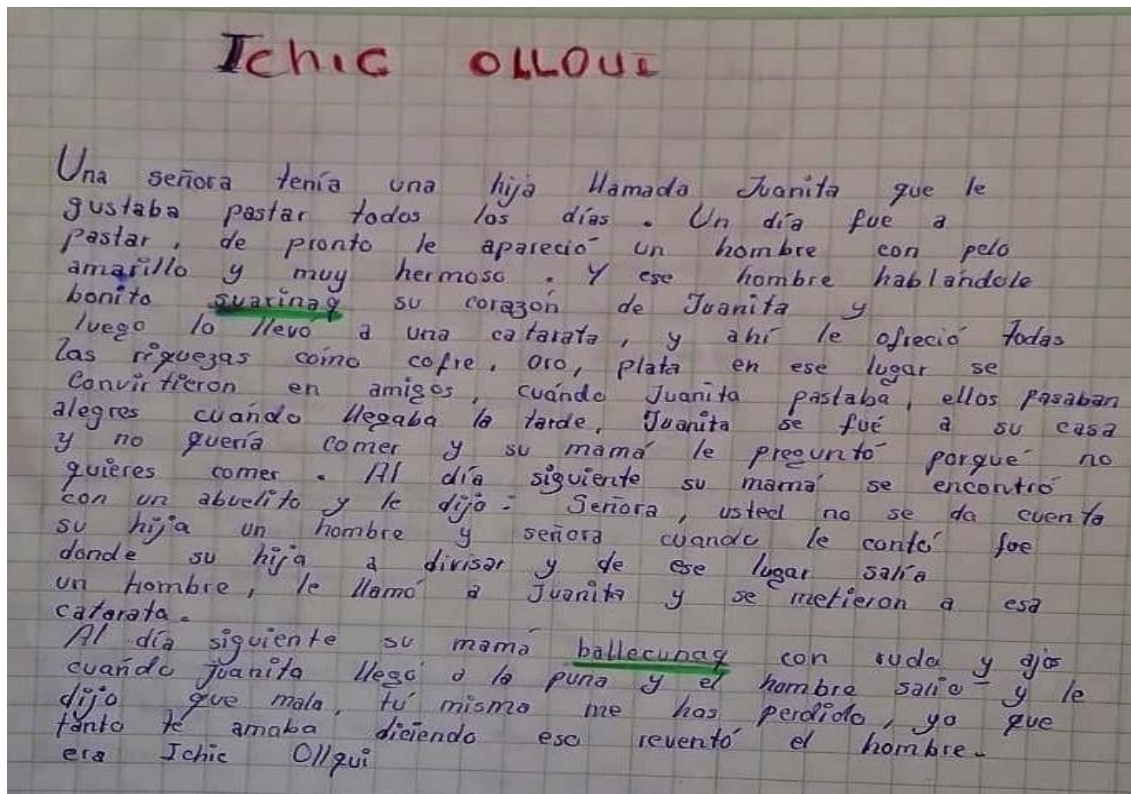 Ichic OLLQUI
Una señora tenía una hija llamada Juanita que le
gustaba pastar todos los días. Un día fue a
pastar, de pronto le apareció un hombre con pelo
amarillo y muy hermoso. Y ese hombre hablándole
bonito suarinaq su corazón de Juanita y
luego lo llevó a una catarata, y ahí le ofreció todas
las riquezas como cofre, oro, plata en ese lugar se
Convirtieron en amigos, cuándo Juanita pastaba, ellos pasaban
alegres cuándo llegaba la tarde, Juanita se fué a su casa
y no quería comer y su mamá le preguntó porqué no
quieres comer. Al día siguiente su mamá se encontró
con un abuelito y le dijo: Señora, usted no se da cuenta
su hija un hombre y señora cuando le contó fue
donde su hija a divisar y de ese lugar salía
un hombre, le llamó a Juanita y se metieron a esa
catarata.
Al día siguiente su mamá ballecunaq con ruda y ajos
cuándo Juanita llegó a la puna y el hombre salió y le
dijo que mala, tú misma me has perdido, yo que
tanto te amaba diciendo eso reventó el hombre.
era Ichic Ollqui